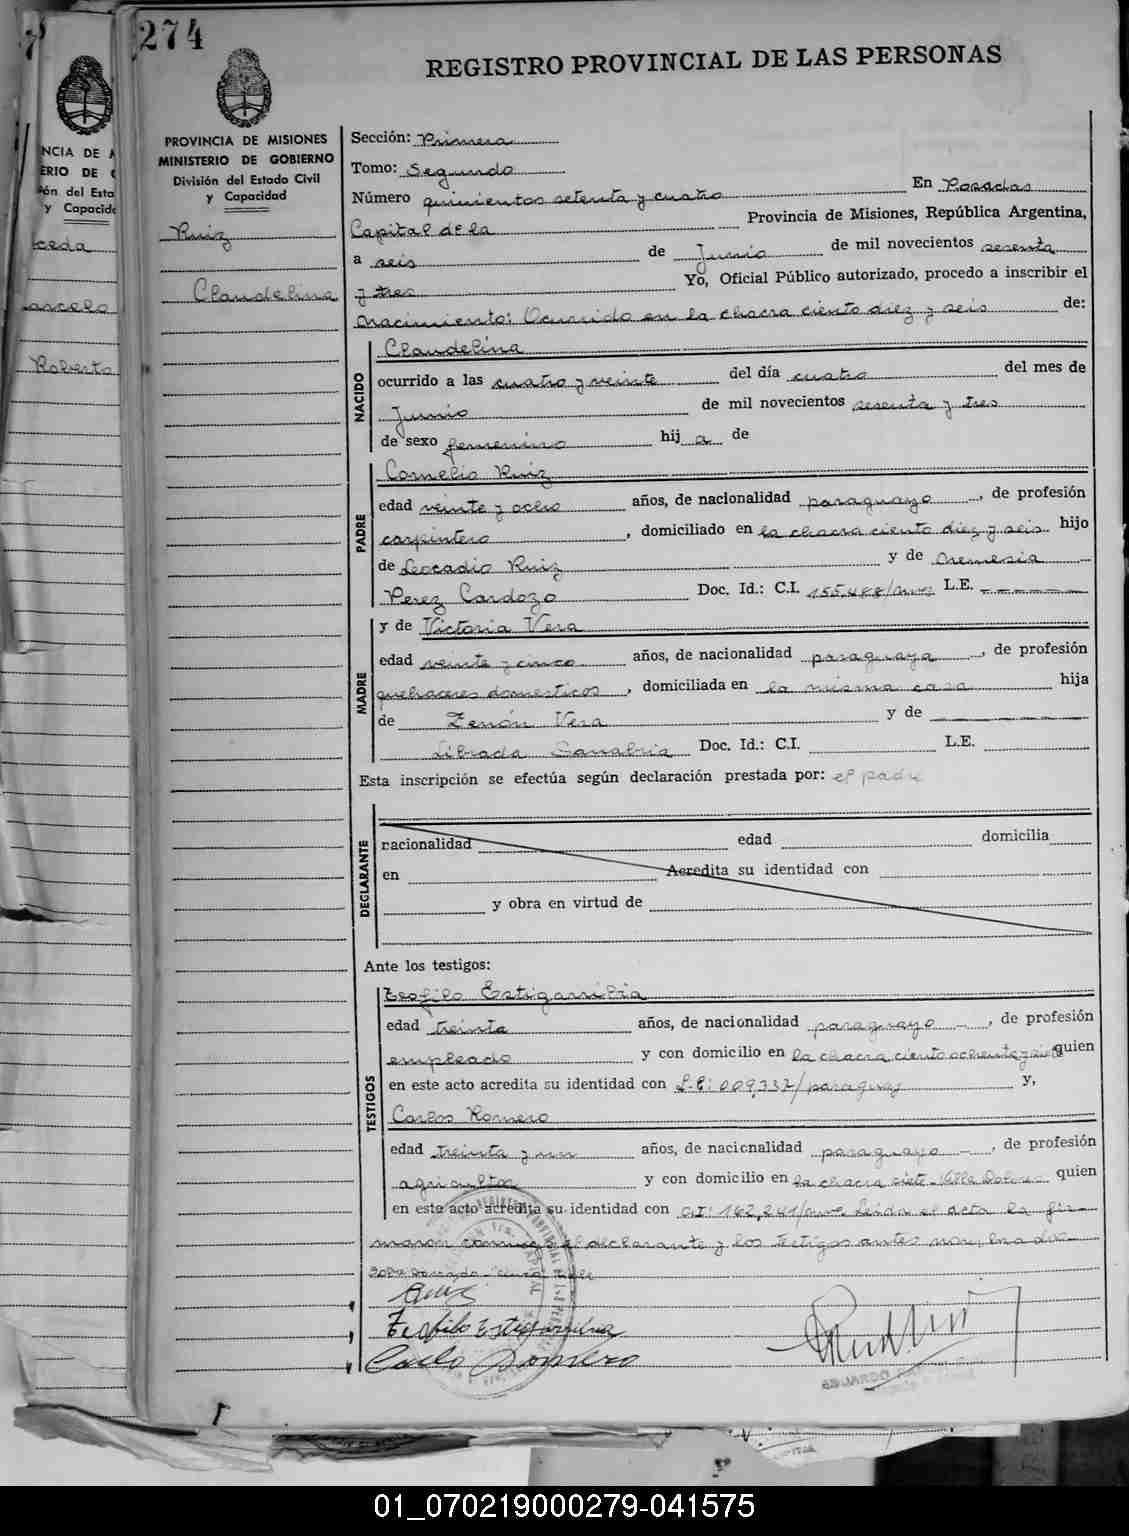 274
REGISTRO PROVINCIAL DE LAS PERSONAS
PROVINCIA DE MISIONES
MINISTERIO DE GOBIERNO
División del Estado Civil
y Capacidad
Ruiz
Claudelina
NCIA DE
ERIO DE
ón del Esta
y Capacida
ceda
arcelo
Roberto
Sección: Primera
Tomo: Segundo
Número quinientos setenta y cuatro En Posadas
Capital de la Provincia de Misiones, República Argentina,
a seis de Junio de mil novecientos sesenta
y tres Yo, Oficial Público autorizado, procedo a inscribir el
nacimiento: Ocurrido en la chacra ciento diez y seis de:
NACIDO
Claudelina
ocurrido a las cuatro y veinte del día cuatro del mes de
Junio de mil novecientos sesenta y tres
de sexo femenino hij a de
PADRE
Cornelio Ruiz
edad veinte y ocho años, de nacionalidad paraguayo, de profesión
carpintero, domiciliado en la chacra ciento diez y seis hijo
de Leocadio Ruiz y de Nemesia
Perez Cardozo Doc. Id.: C.I. 155.488/ L.E.
MADRE
y de Victoria Vera
edad veinte y cinco años, de nacionalidad paraguaya, de profesión
quehaceres domesticos, domiciliada en la misma casa hija
de Zenón Vera y de
Librada Sanabria Doc. Id.: C.I. L.E.
Esta inscripción se efectúa según declaración prestada por: el padre
DECLARANTE
nacionalidad edad domicilia
en Acredita su identidad con
y obra en virtud de
Ante los testigos:
TESTIGOS
Teofilo Estigarribia
edad treinta años, de nacionalidad paraguayo -, de profesión
empleado y con domicilio en la chacra ciento ochenta y quien
en este acto acredita su identidad con 009,337/paraguay y,
Carlos Romero
edad treinta y un años, de nacionalidad paraguayo -, de profesión
agricultor y con domicilio en la chacra siete - Villa quien
en este acto acredita su identidad con C.I: 162,241/ Leida el acta la fir-
maron conmigo el declarante y los testigos antes
Teofilo Estigarribia
Carlo Romero
EDUARDO
01_070219000279-041575